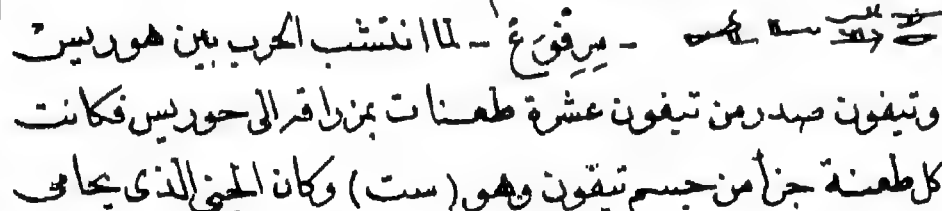 - مرقوع - لما انتشب الحرب بين هوريس
وتيفون صدر من تيفون عشرة طعنات بمزراقه الى حوريس فكانت
كل طعنة جزأ من جسم تيفون وهو (ست) وكان الجنى الذى يحامى